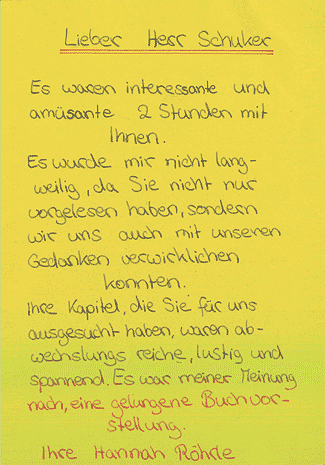 Lieber Herr Schuker
Es waren interessante und
amüsante 2 Stunden mit
Ihnen.
Es wurde mir nicht lang-
weilig, da Sie nicht nur
vorgelesen haben, sondern
wir uns auch mit unseren
Gedanken verwirklichen
konnten.
Ihre Kapitel, die Sie für uns
ausgesucht haben, waren ab-
wechslungs reiche, lustig und
spannend. Es war meiner Meinung
nach, eine gelungene Buchvor-
stellung.
Ihre Hannah Röhrle